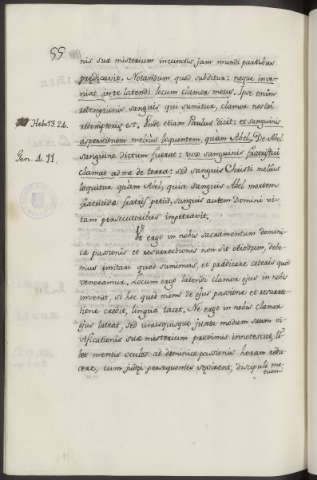 99
nis suæ misterium incundis jam mundi partibus
prædicavit. Notandum quod subditur: neque inve-
niat in te latendi locum clamor meus. Ipse enim
redemptionis sanguis qui sumitur, clamor nostri
redemptoris est. Unde etiam Paulus dicit: et sanguinis
Heb. 12. 24.
aspersionem melius loquentem, quàm Abel. De Abel
sanguine dictum fuerat: vox sanguinis fratris tui
Gen. 4. 11.
clamat ad me de terra: sed sanguis Christi melius
loquitur quàm Abel, quia sanguis Abel mortem
fratricidæ fratris petiit, sanguis autem Domini vi-
tam persecutoribus impetravit.
Ut ergo in nobis sacramentum domini-
cæ passionis et resurrectionis non sit otiosum, debe-
mus imitari quod sumimus, et prædicare ceteris quod
veneramur. Locum ergo latendi clamor ejus in nobis
invenit, si hoc quod mens de ejus passione et resurrec-
tione credit, lingua tacet. Ne ergo in nobis clamor
ejus lateat, sed unusquisque juxta modum suum vi-
vificationis suæ misterium proximis innotescat,
mentis oculos ad dominicæ passionis horam redu-
cere, cum judæi persequentes sævirent, discipuli me-
tuentes